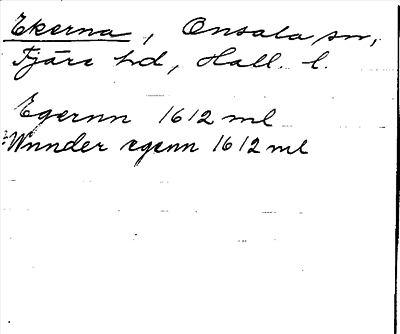 Ekerna, Onsala sn,
Fjäre hd, Hall. l.
Egernn 1612 ml
Wnnder egenn 1612 ml